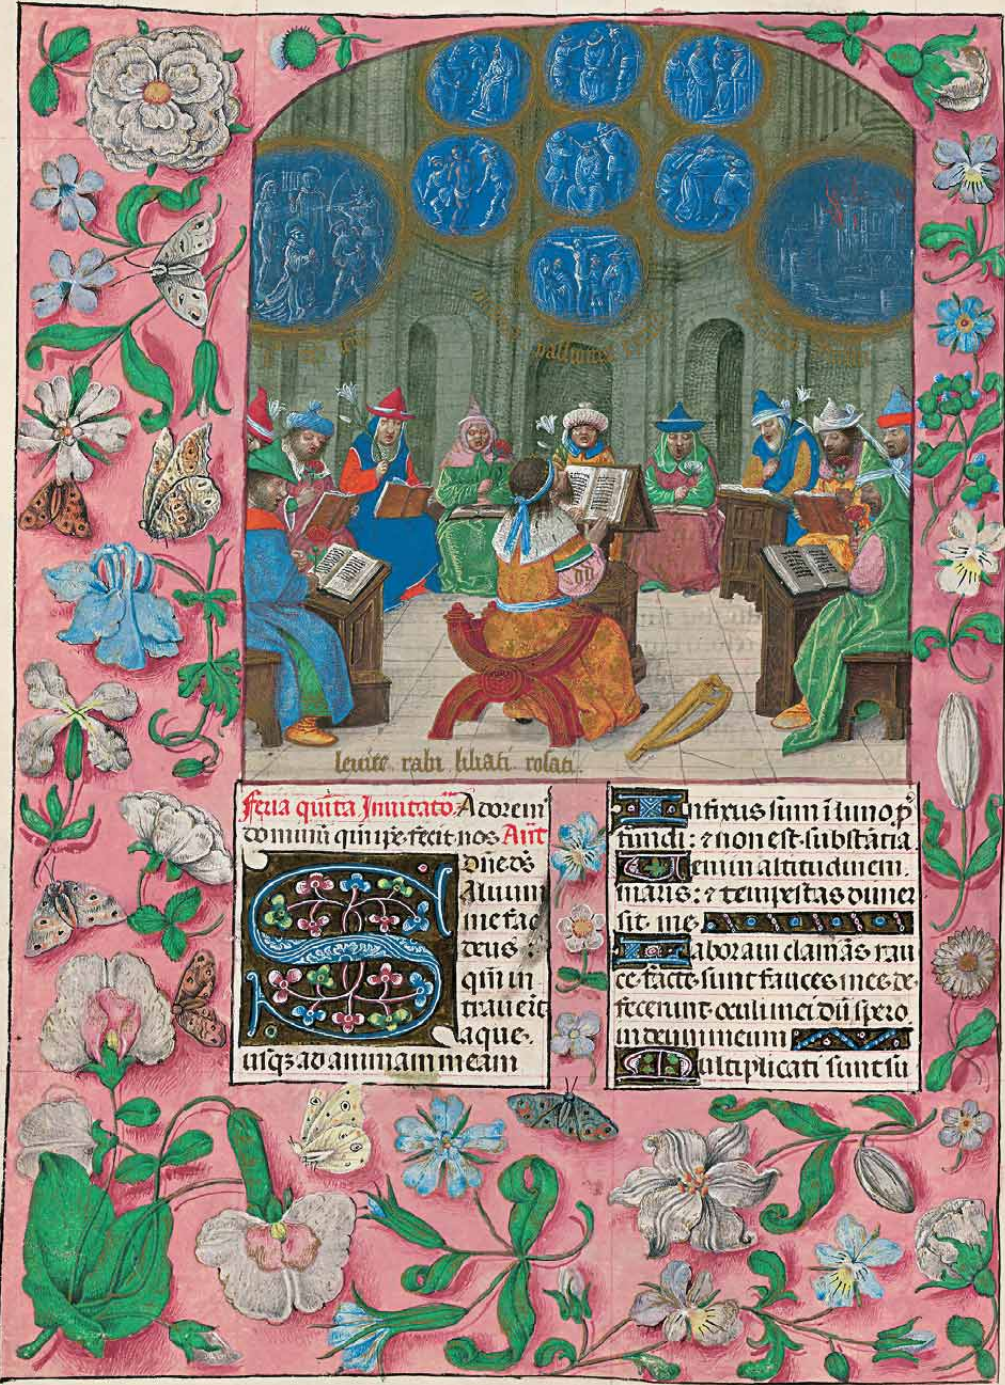 leuite rabi liliati rosati.
feria quīta Inuitatō. Adorem⁹
dominū qui ip̄e fecit nos Añt
Saluum
me fac
deus :
qm̄ in
trauerūt
aque.
usqʒ ad animam meam
Infixus sum ī limo p̄
fundi: ⁊ non est substātia
Veni in altitudinem
maris: ⁊ tempestas dimer
sit me.
Laboraui clamās rau
ce facte sunt fauces mee de
fecerunt oculi mei dū spero
in deum meum
Multiplicati sunt su